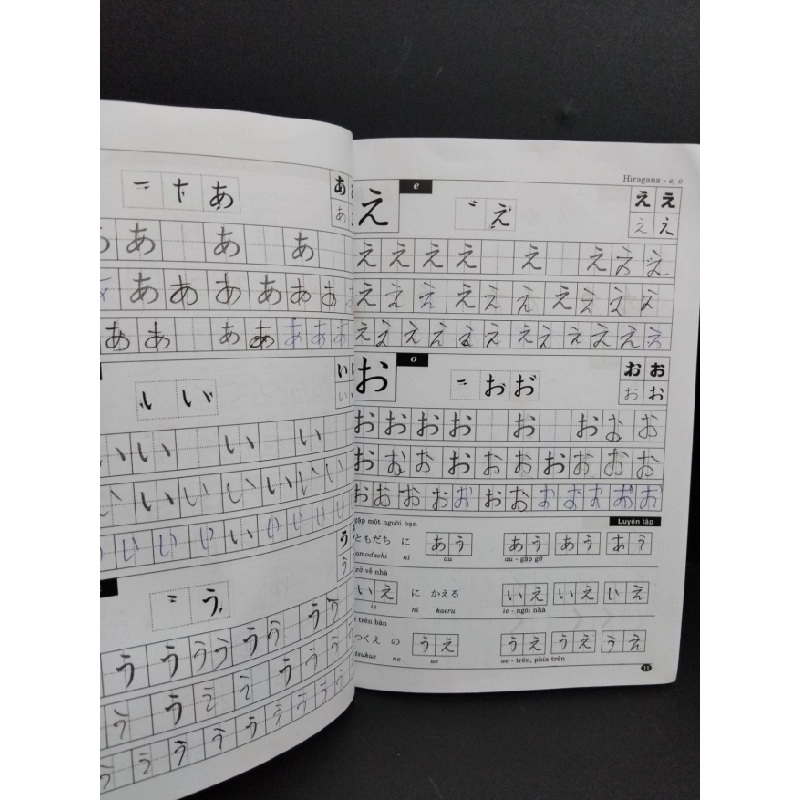 あ
あ
あ あ あ
あ あ あ あ あ あ
あ あ あ あ あ あ あ
い
い
い
い い い い
い い い い い い い
い い い い い い い い
う
う
う
う う う う う う う
う う う う う う う う
う う う う う う う う
Hiragana - e, o
え e え え え
え え
え え え え え え え え
え え え え え え え え え え
え え え え え え え え え え え え
お o お お お お
お お
お お お お お お お お
お お お お お お お お お お
お お お お お お お お お お お お
gặp một người bạn Luyện tập
ともだち に あう あう あう あう
omodachi ni au au - gặp gỡ
trở về nhà
いえ に かえる いえ いえ いえ
ie ni kaeru ie - ngôi nhà
trên bàn
つくえ の うえ うえ うえ うえ
tsukue no ue ue - trên, phía trên
11